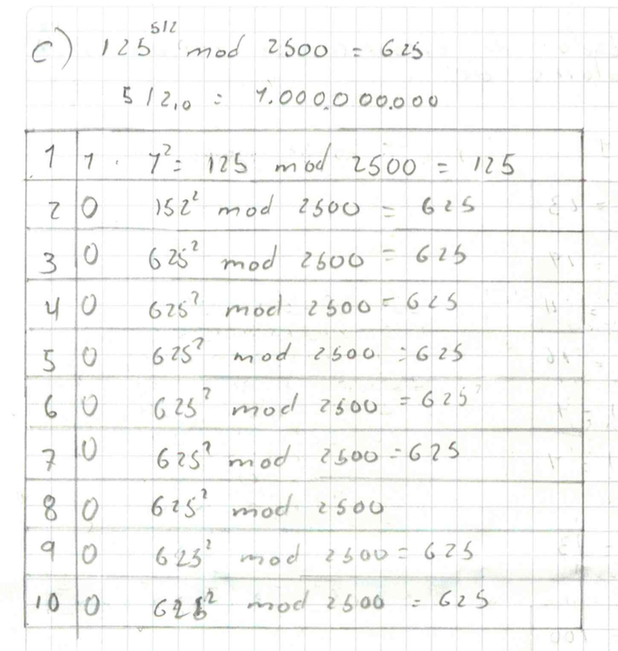 c) 125^512 mod 2500 = 625
512,0 = 1.000.000.000
1 1 . 1² = 125 mod 2500 = 125
2 0 152² mod 2500 = 625
3 0 625² mod 2500 = 625
4 0 625² mod 2500 = 625
5 0 625² mod 2500 = 625
6 0 625² mod 2500 = 625
7 0 625² mod 2500 = 625
8 0 625² mod 2500
9 0 625² mod 2500 = 625
10 0 625² mod 2500 = 625